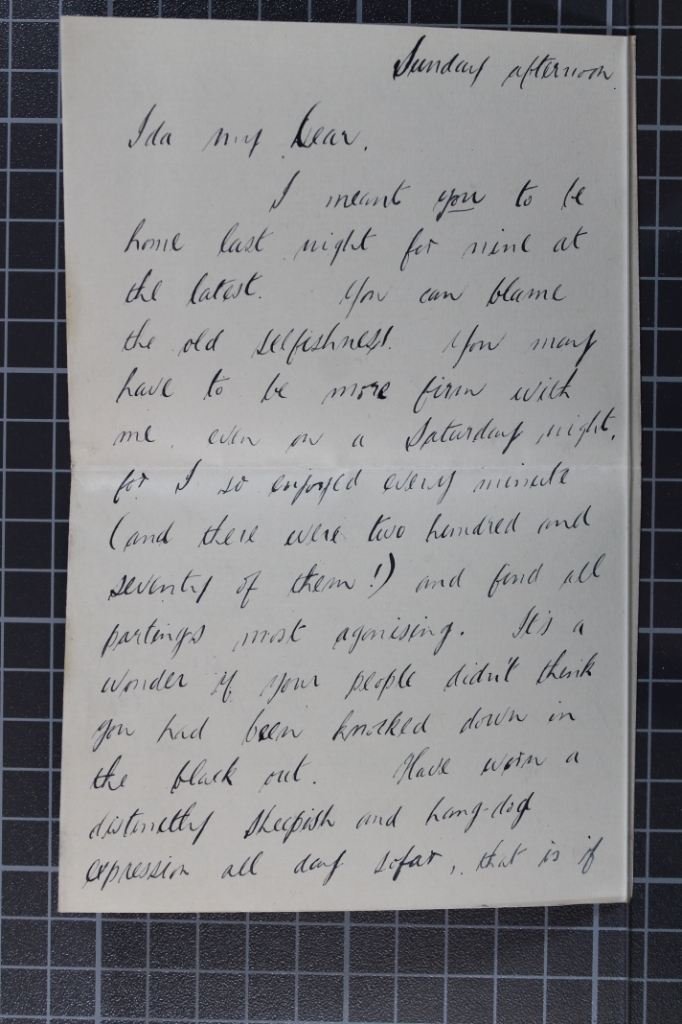 Sunday afternoon
Ida my Dear,
I meant you to be
home last night for nine at
the latest. You can blame
the old selfishness. You may
have to be more firm with
me, even on a Saturday night,
for I so enjoyed every minute
(and there were two hundred and
seventy of them!) and find all
partings most agonising. It's a
wonder if your people didn't think
you had been knocked down in
the black out. Have worn a
distinctly sheepish and hang-dog
expression all day sofar, that is if